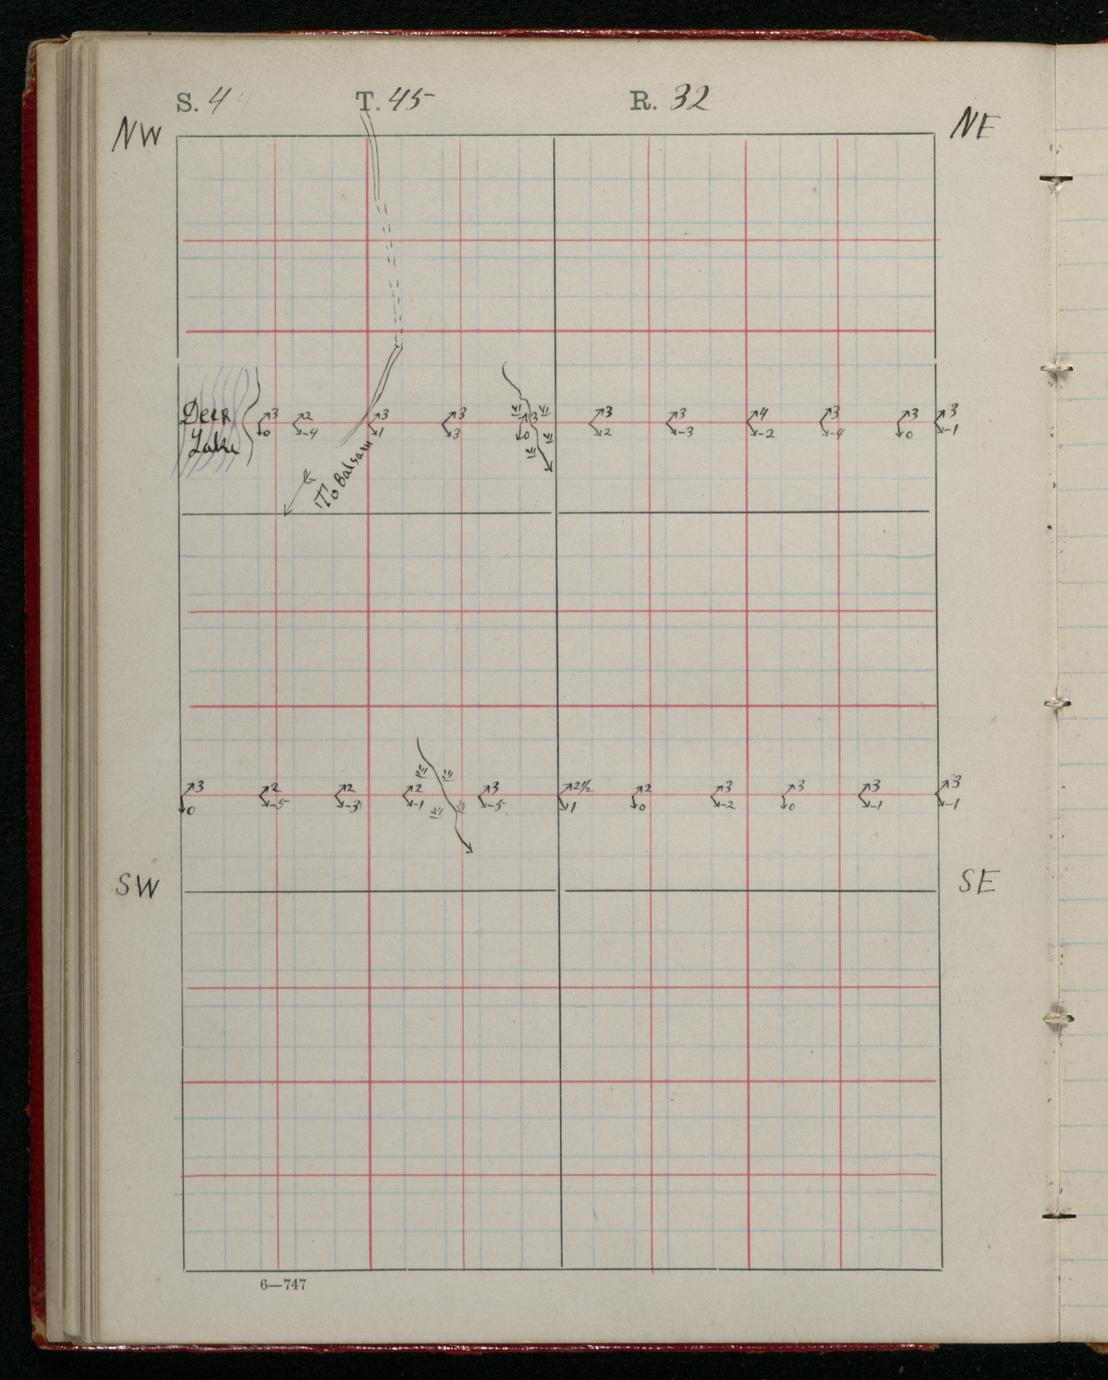 S. 4 T. 45 R. 32
NW NE
Deer
Lake
3 2 3 3 3 3 3 4 3 3 3
0 -4 1 3 0 2 -3 -2 -4 0 -1
To Balsam
3 2 2 2 3 2½ 2 3 3 3 3
0 -5 -3 -1 -5 1 0 -2 0 -1 -1
SW SE
6—747